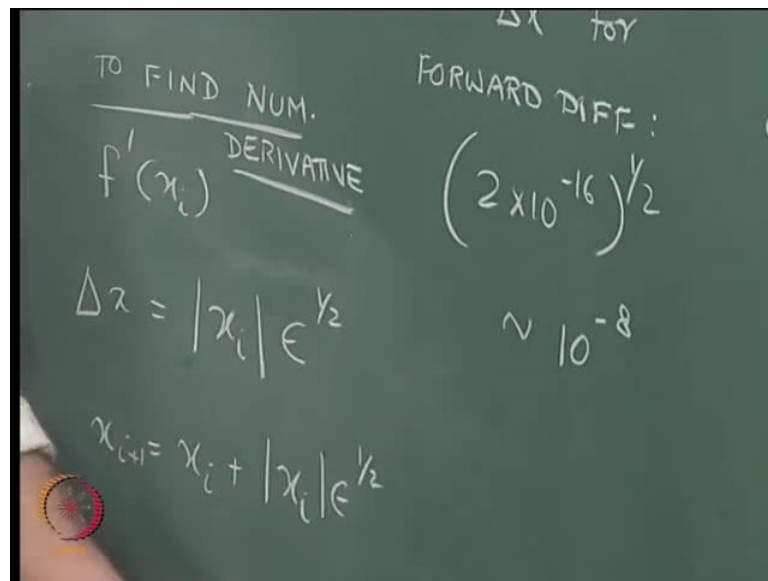 TO FIND NUM.
DERIVATIVE
f'(x_i)
Δx = |x_i| ϵ^{1/2}
x_{i+1} = x_i + |x_i| ϵ^{1/2}
Δx for
FORWARD DIFF:
(2 × 10^{-16})^{1/2}
~ 10^{-8}